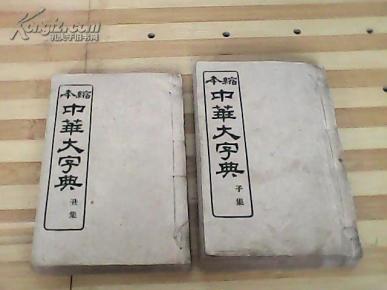 孔夫子旧书网
縮本
中華大字典
丑集
縮本
中華大字典
子集